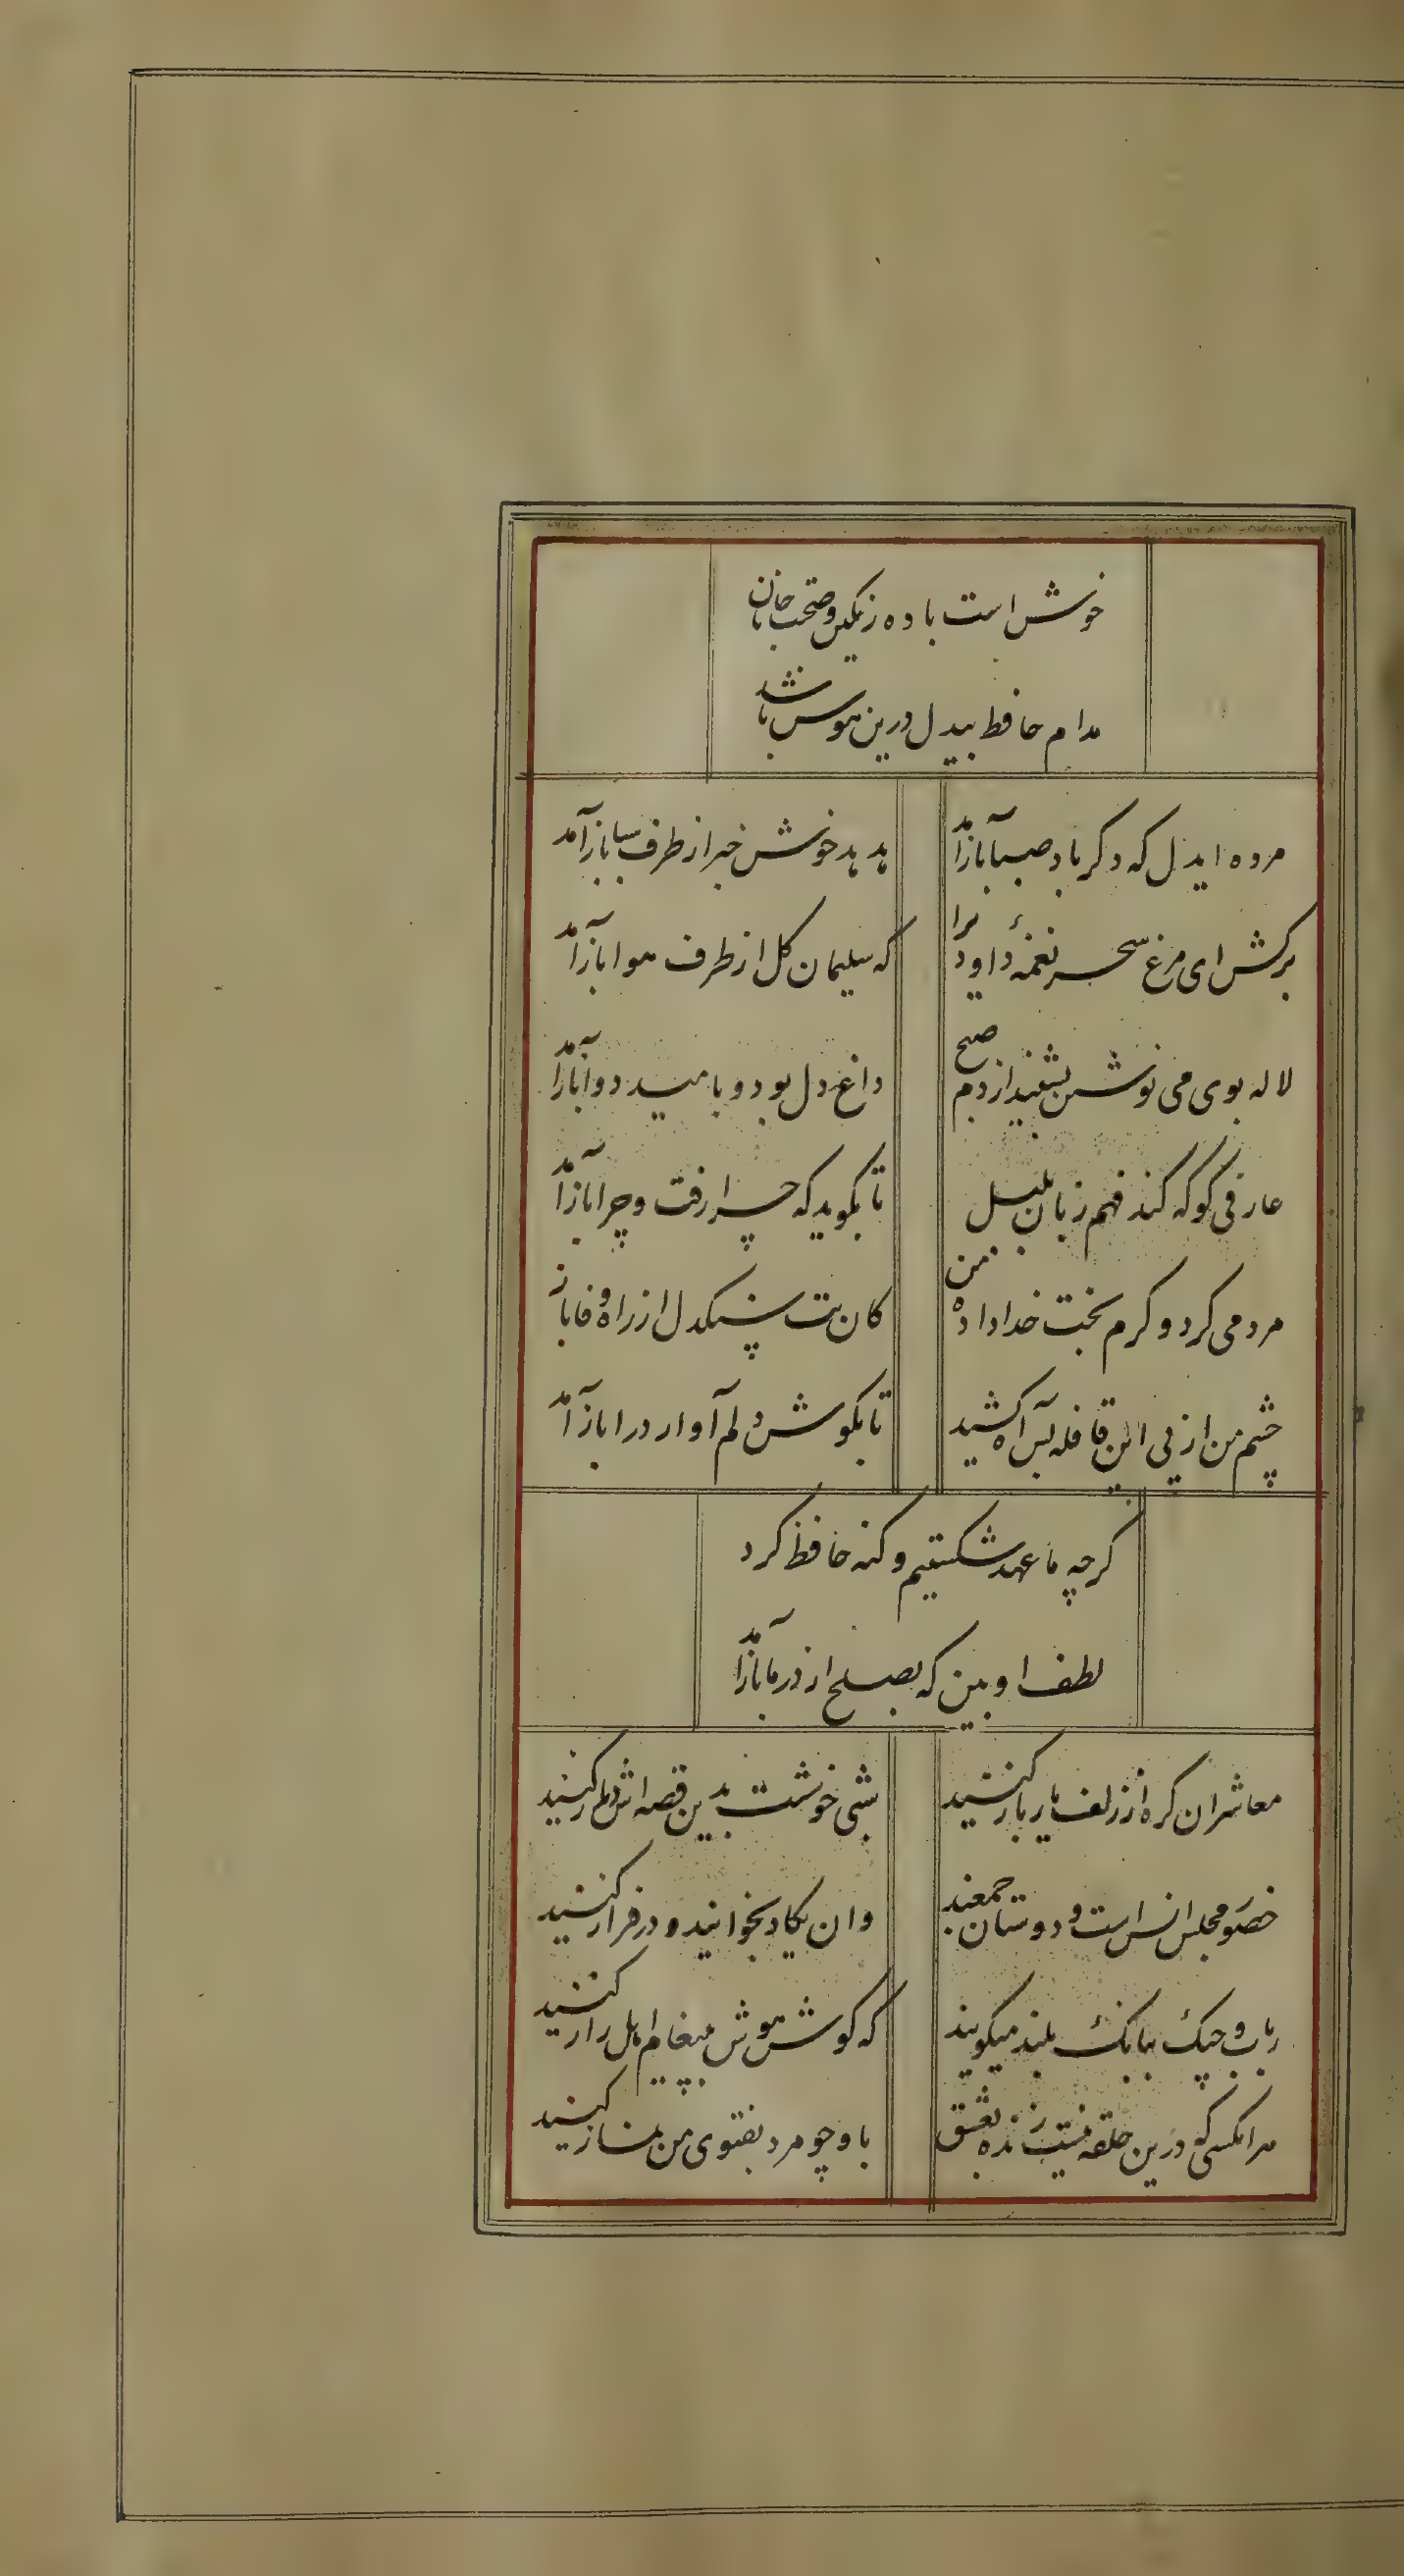 خوش است باده رنگین و صحبت جانان
مدام حافظ بیدل درین هوس باشد
مژده ایدل که دگر باد صبا بازآمد
هدهد خوش خبر از طرف سبا بازآمد
برکش ای مرغ سحر نغمهٔ داود برا
که سلیمان گل از طرف هوا بازآمد
لاله بوی می نوشین بشنید از دم صبح
داغ دل بود و بامید دوا بازآمد
عارفی کو که کند فهم زبان بلبل
تا بگوید که چرا رفت و چرا بازآمد
مردمی کرد و کرم بخت خداداده من
کان بت سنگدل از راه وفا باز
چشم من از پی این قافله بس آه کشید
تا بگوش دلم آواز درا بازآمد
گرچه ما عهد شکستیم و گنه حافظ کرد
لطف او بین که بصلح از در ما بازآمد
معاشران گره از زلف یار باز کنید
شبی خوشست بدین قصه اش دراز کنید
حضور مجلس انس است و دوستان جمعند
وان یکاد بخوانید و در فراز کنید
رباب و چنگ ببانگ بلند میگویند
که گوش هوش بپیغام اهل راز کنید
هرانکسی که درین حلقه نیست زنده بعشق
باو چو مرده بفتوی من نماز کنید